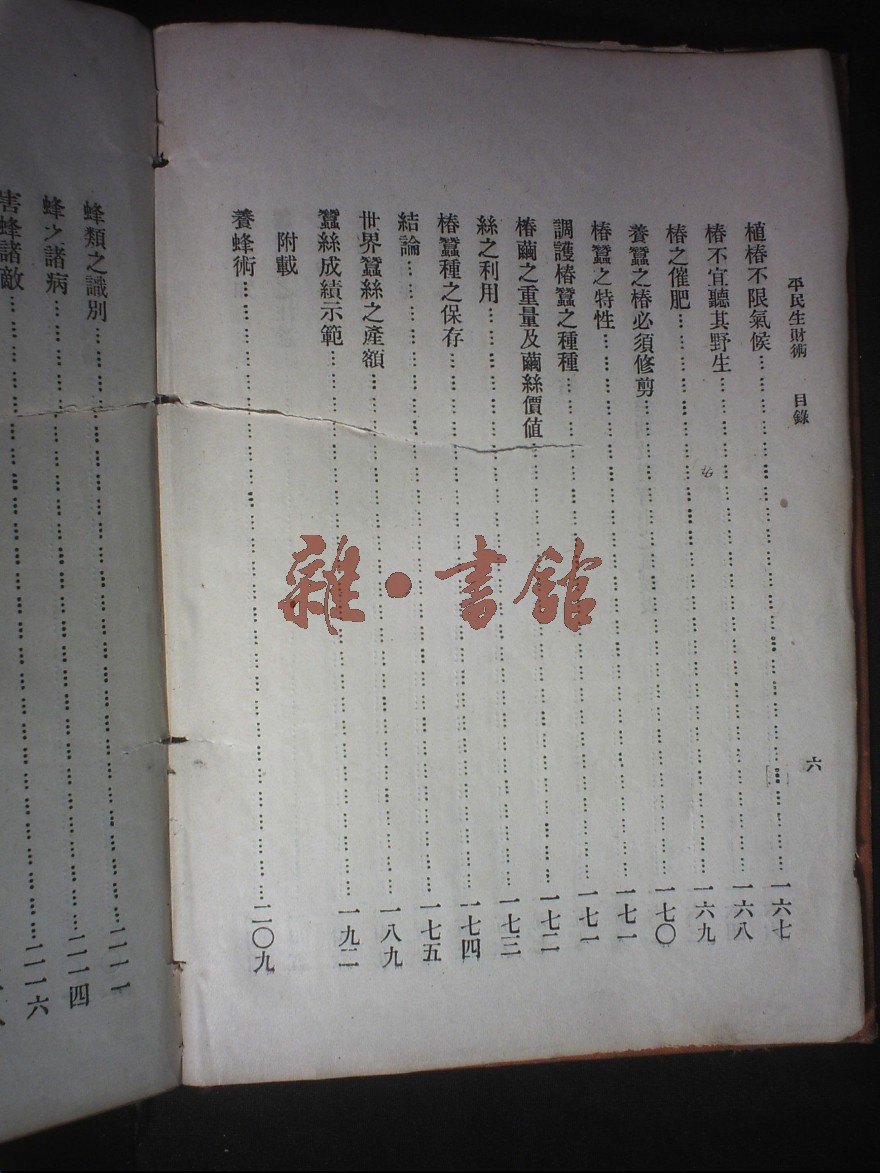 平民生財術 目錄 六
植椿不限氣候……一六七
椿不宜聽其野生……一六八
椿之催肥……一六九
養蠶之椿必須修剪……一七〇
椿蠶之特性……一七一
調護椿蠶之種種……一七一
椿繭之重量及繭絲價值……一七二
絲之利用……一七三
椿蠶種之保存……一七四
結論……一七五
世界蠶絲之產額……一八九
蠶絲成績示範……一九二
附載
養蜂術……二〇九
蜂類之識別……二一一
蜂之諸病……二一四
害蜂諸敵……二一六
雜·書館